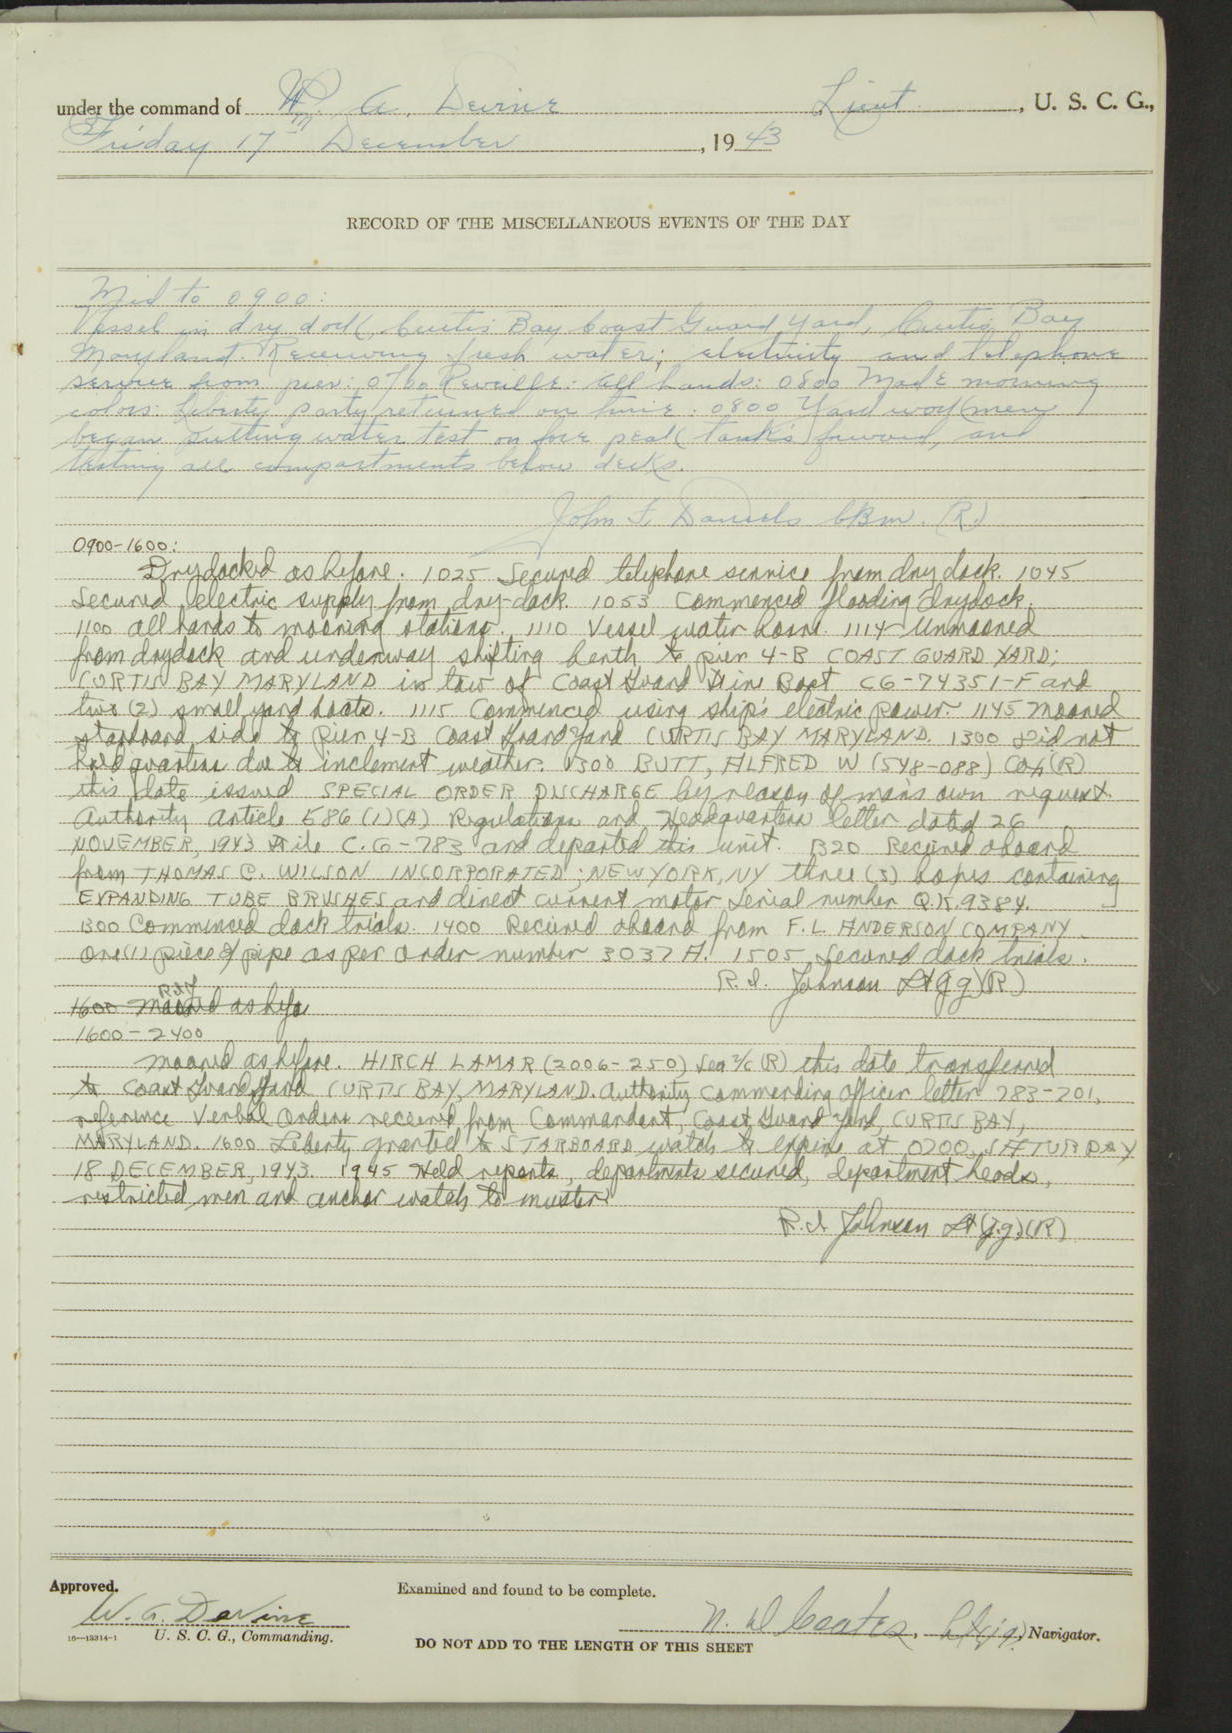 under the command of Wm. A. Devine Lieut , U. S. C. G.,
Friday 17th December , 19 43
RECORD OF THE MISCELLANEOUS EVENTS OF THE DAY
Mid to 0900:
Vessel in dry dock Curtis Bay Coast Guard Yard, Curtis Bay
Maryland. Receiving fresh water; electricity and telephone
service from pier: 0700 Reveille: All hands: 0800 Made morning
colors: Liberty party returned on time: 0800 Yard workmen
began putting water test on fore peak tanks forward, and
testing all compartments below decks.
John F. Daniels CBM. (R)
0900-1600:
Drydocked as before. 1025 Secured telephone service from dry dock. 1045
Secured electric supply from dry-dock. 1053 Commenced flooding drydock.
1100 all hands to mooring stations. 1110 Vessel water borne. 1114 Unmoored
from drydock and underway shifting berth to pier 4-B COAST GUARD YARD;
CURTIS BAY MARYLAND in tow of Coast Guard Fire Boat CG-74351-F and
two (2) small yard boats. 1115 Commenced using ship's electric power. 1145 Moored
starboard side to Pier 4-B Coast Guard Yard CURTIS BAY MARYLAND. 1300 Did not
hold quarters due to inclement weather. 1300 BUTT, ALFRED W (548-088) Cox (R)
this date issued SPECIAL ORDER DISCHARGE by reason of man's own request.
Authority Article 586 (1)(A) Regulations and Headquarters letter dated 26
NOVEMBER, 1943 File C.G-783 and departed this unit. 1320 Received aboard
from THOMAS C. WILSON INCORPORATED; NEW YORK, NY three (3) boxes containing
EXPANDING TUBE BRUSHES and direct current motor serial number Q.K.9384.
1300 Commenced dock trials. 1400 Received aboard from F. L. ANDERSON COMPANY
one (1) piece of pipe as per order number 3037 A. 1505 Secured dock trials.
R. I. Johnson Lt(jg)(R)
1600 Moored as befo
1600-2400
Moored as before. HIRCH LAMAR (2006-250) Sea 2/c (R) this date transferred
to Coast Guard Yard CURTIS BAY, MARYLAND. Authority Commanding Officer letter 783-701,
reference Verbal Orders received from Commandant, Coast Guard Yard, CURTIS BAY,
MARYLAND. 1600 Liberty granted to STARBOARD watch to expire at 0700, SATURDAY
18 DECEMBER, 1943. 1945 Held reports, departments secured, department heads,
restricted men and anchor watch to muster.
R. I. Johnson Lt (j.g)(R)
Approved. Examined and found to be complete.
W. A. Devine N. W Coates, Lt(jg), Navigator.
16—13314-1 U. S. C. G., Commanding.
DO NOT ADD TO THE LENGTH OF THIS SHEET